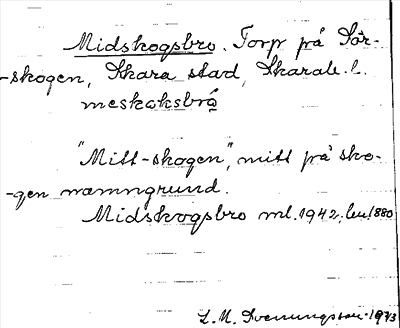 Midskogsbro. Torp på Sör-
-skogen, Skara stad, Skarab. l.
meskoksbrå
"Mitt-skogen", mitt på sko-
-gen namngrund.
Midskogsbro ml. 1942, lev. 1880
L. M. Svenungsson 1973